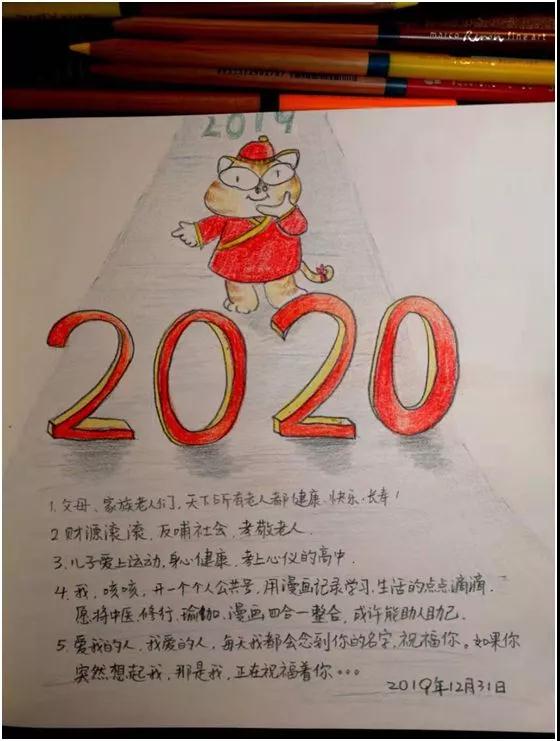 marco Renoir fine art
2019
2020
1. 父母、家族老人们, 天下所有老人都健康、快乐、长寿!
2. 财源滚滚, 反哺社会, 孝敬老人.
3. 儿子爱上运动, 身心健康, 考上心仪的高中.
4. 我, 咳咳, 开一个个人公共号, 用漫画记录学习、生活的点点滴滴.
愿将中医、修行、瑜伽、漫画四合一整合, 或许能助人助己.
5. 爱我的人, 我爱的人, 每天我都会念到你的名字, 祝福你。如果你
突然想起我, 那是我, 正在祝福着你。。。
2019年12月31日